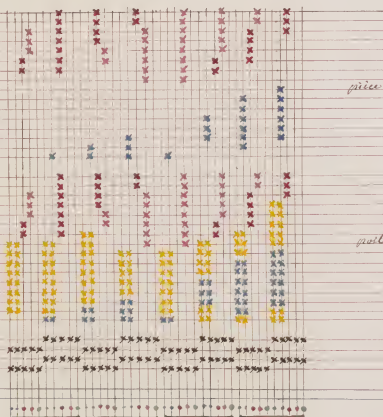 pièce
poil